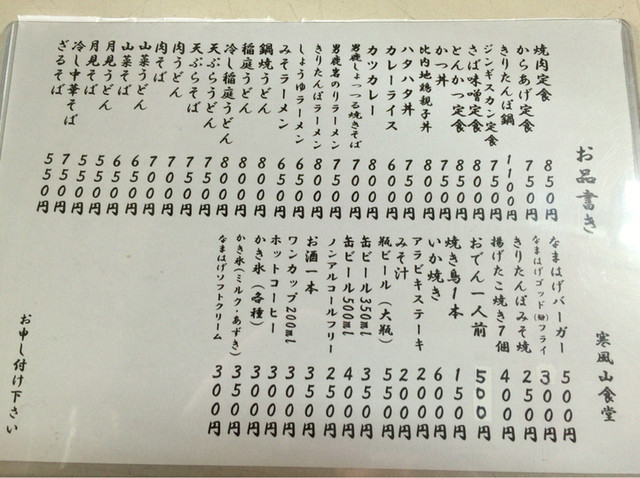 お品書き
焼肉定食 850円
からあげ定食 750円
きりたんぽ鍋 1100円
ジンギスカン定食 750円
さば味噌定食 800円
とんかつ定食 850円
かつ丼 750円
比内地鶏親子丼 800円
ハタハタ丼 700円
カレーライス 600円
カツカレー 800円
男鹿しょっつる焼きそば 700円
男鹿岩のりラーメン 750円
きりたんぽラーメン 800円
しょうゆラーメン 650円
みそラーメン 650円
鍋焼うどん 800円
稲庭うどん 800円
冷し稲庭うどん 800円
天ぷらうどん 750円
天ぷらそば 750円
肉うどん 700円
肉そば 700円
山菜うどん 650円
山菜そば 650円
月見うどん 550円
月見そば 550円
冷し中華そば 750円
ざるそば 550円
寒風山食堂
なまはげバーガー 500円
なまはげゴッド(鰰)フライ 300円
きりたんぽみそ焼 250円
揚げたこ焼き7個 400円
おでん一人前 500円
焼き鳥1本 150円
いか焼き 600円
アラビキステーキ 200円
みそ汁 200円
瓶ビール(大瓶) 550円
缶ビール350ml 350円
缶ビール500ml 400円
ノンアルコールフリー 250円
お酒一本 350円
ワンカップ200ml 300円
ホットコーヒー 300円
かき氷(各種) 300円
かき氷(ミルク・あずき) 350円
なまはげソフトクリーム 300円
お申し付け下さい